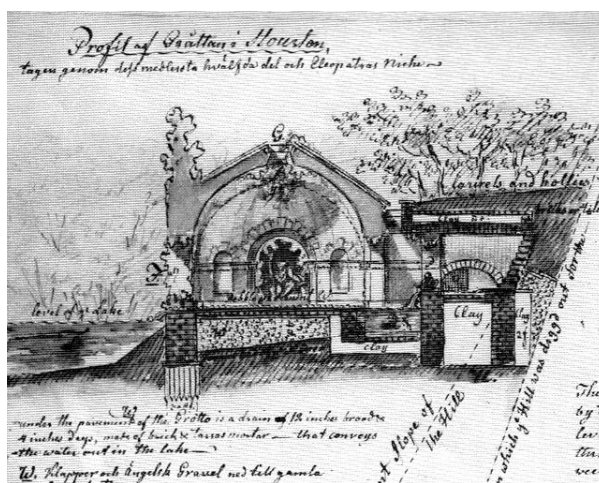 Profil af Gråttan i Hourton,
tagen genom dess medlersta hwälfda del och Cleopatras Niche
G
laurels and hollies
Clay
level of ye Lake
Clay
Clay
Clay
W
under the pavement of the Grotto is a drain of 18 inches broad &
4 inches deep, made of brick & tarras mortar — that conveys
the water out in the lake —
W. Klapper och Angelsk Gravel ned till gamla
nt Slope of
The Hill
n which ye Hill was digg'd out for the
The
by
lev